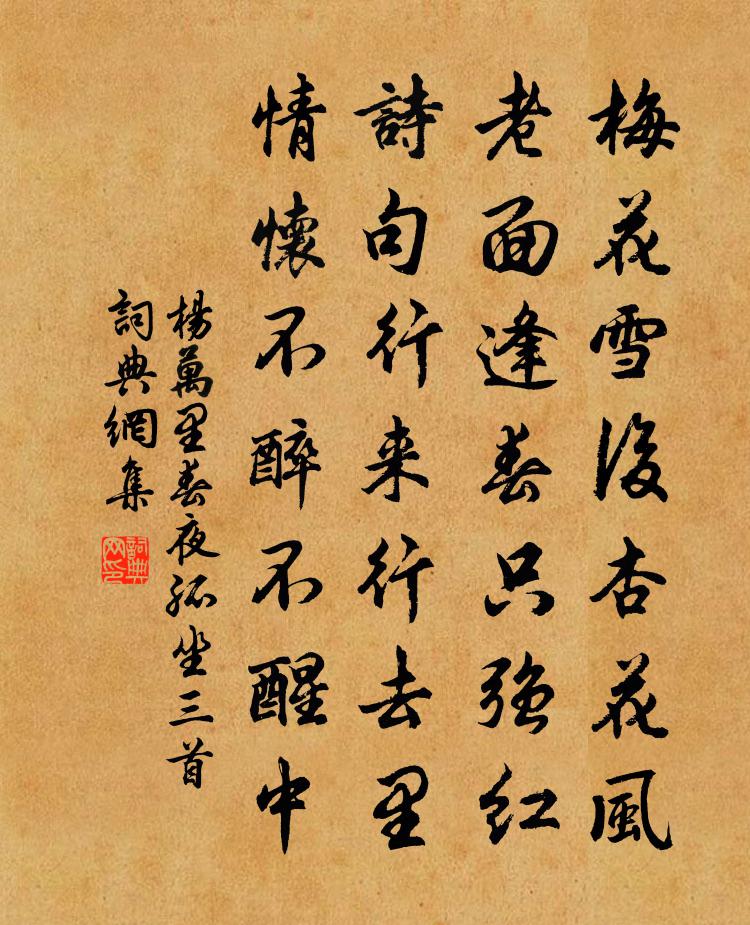 梅花雪後杏花風
老面逢春只強紅
詩句行来行去里
情懷不醉不醒中
楊萬里春夜孤坐三首
詞典網集
詞典
网印